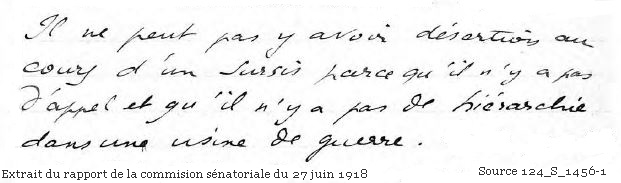 Il ne peut pas y avoir désertion au
cours d'un sursis parce qu'il n'y a pas
d'appel et qu'il n'y a pas de hiérarchie
dans une usine de guerre.
Extrait du rapport de la commision sénatoriale du 27 juin 1918 Source 124_S_1456-1